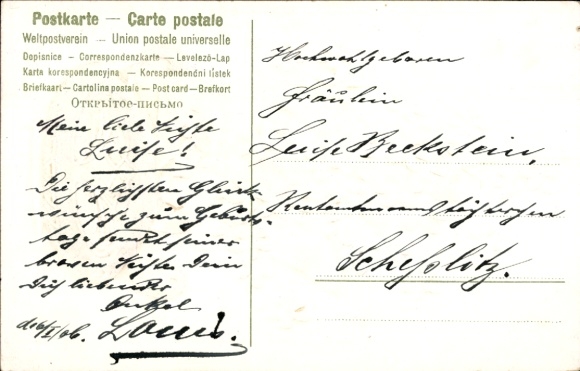 Postkarte — Carte postale
Weltpostverein — Union postale universelle
Dopisnice — Correspondenzkarte — Levelező-Lap
Karta korespondencyjna — Korespondendni listek
Briefkaart — Cartolina postale — Post card — Brefkort
Открытое-письмо
Mein liebe Nichte
Luise!
Die herzlichsten Glück-
wünsche zum Geburts-
tage sendet seiner
braven Nichte Dein
Dich liebender
Onkel
Louis.
Hochwohlgeboren
Fräulein
Luise Beckstein,
Rentamtmannstöchterchen
Scheßlitz.